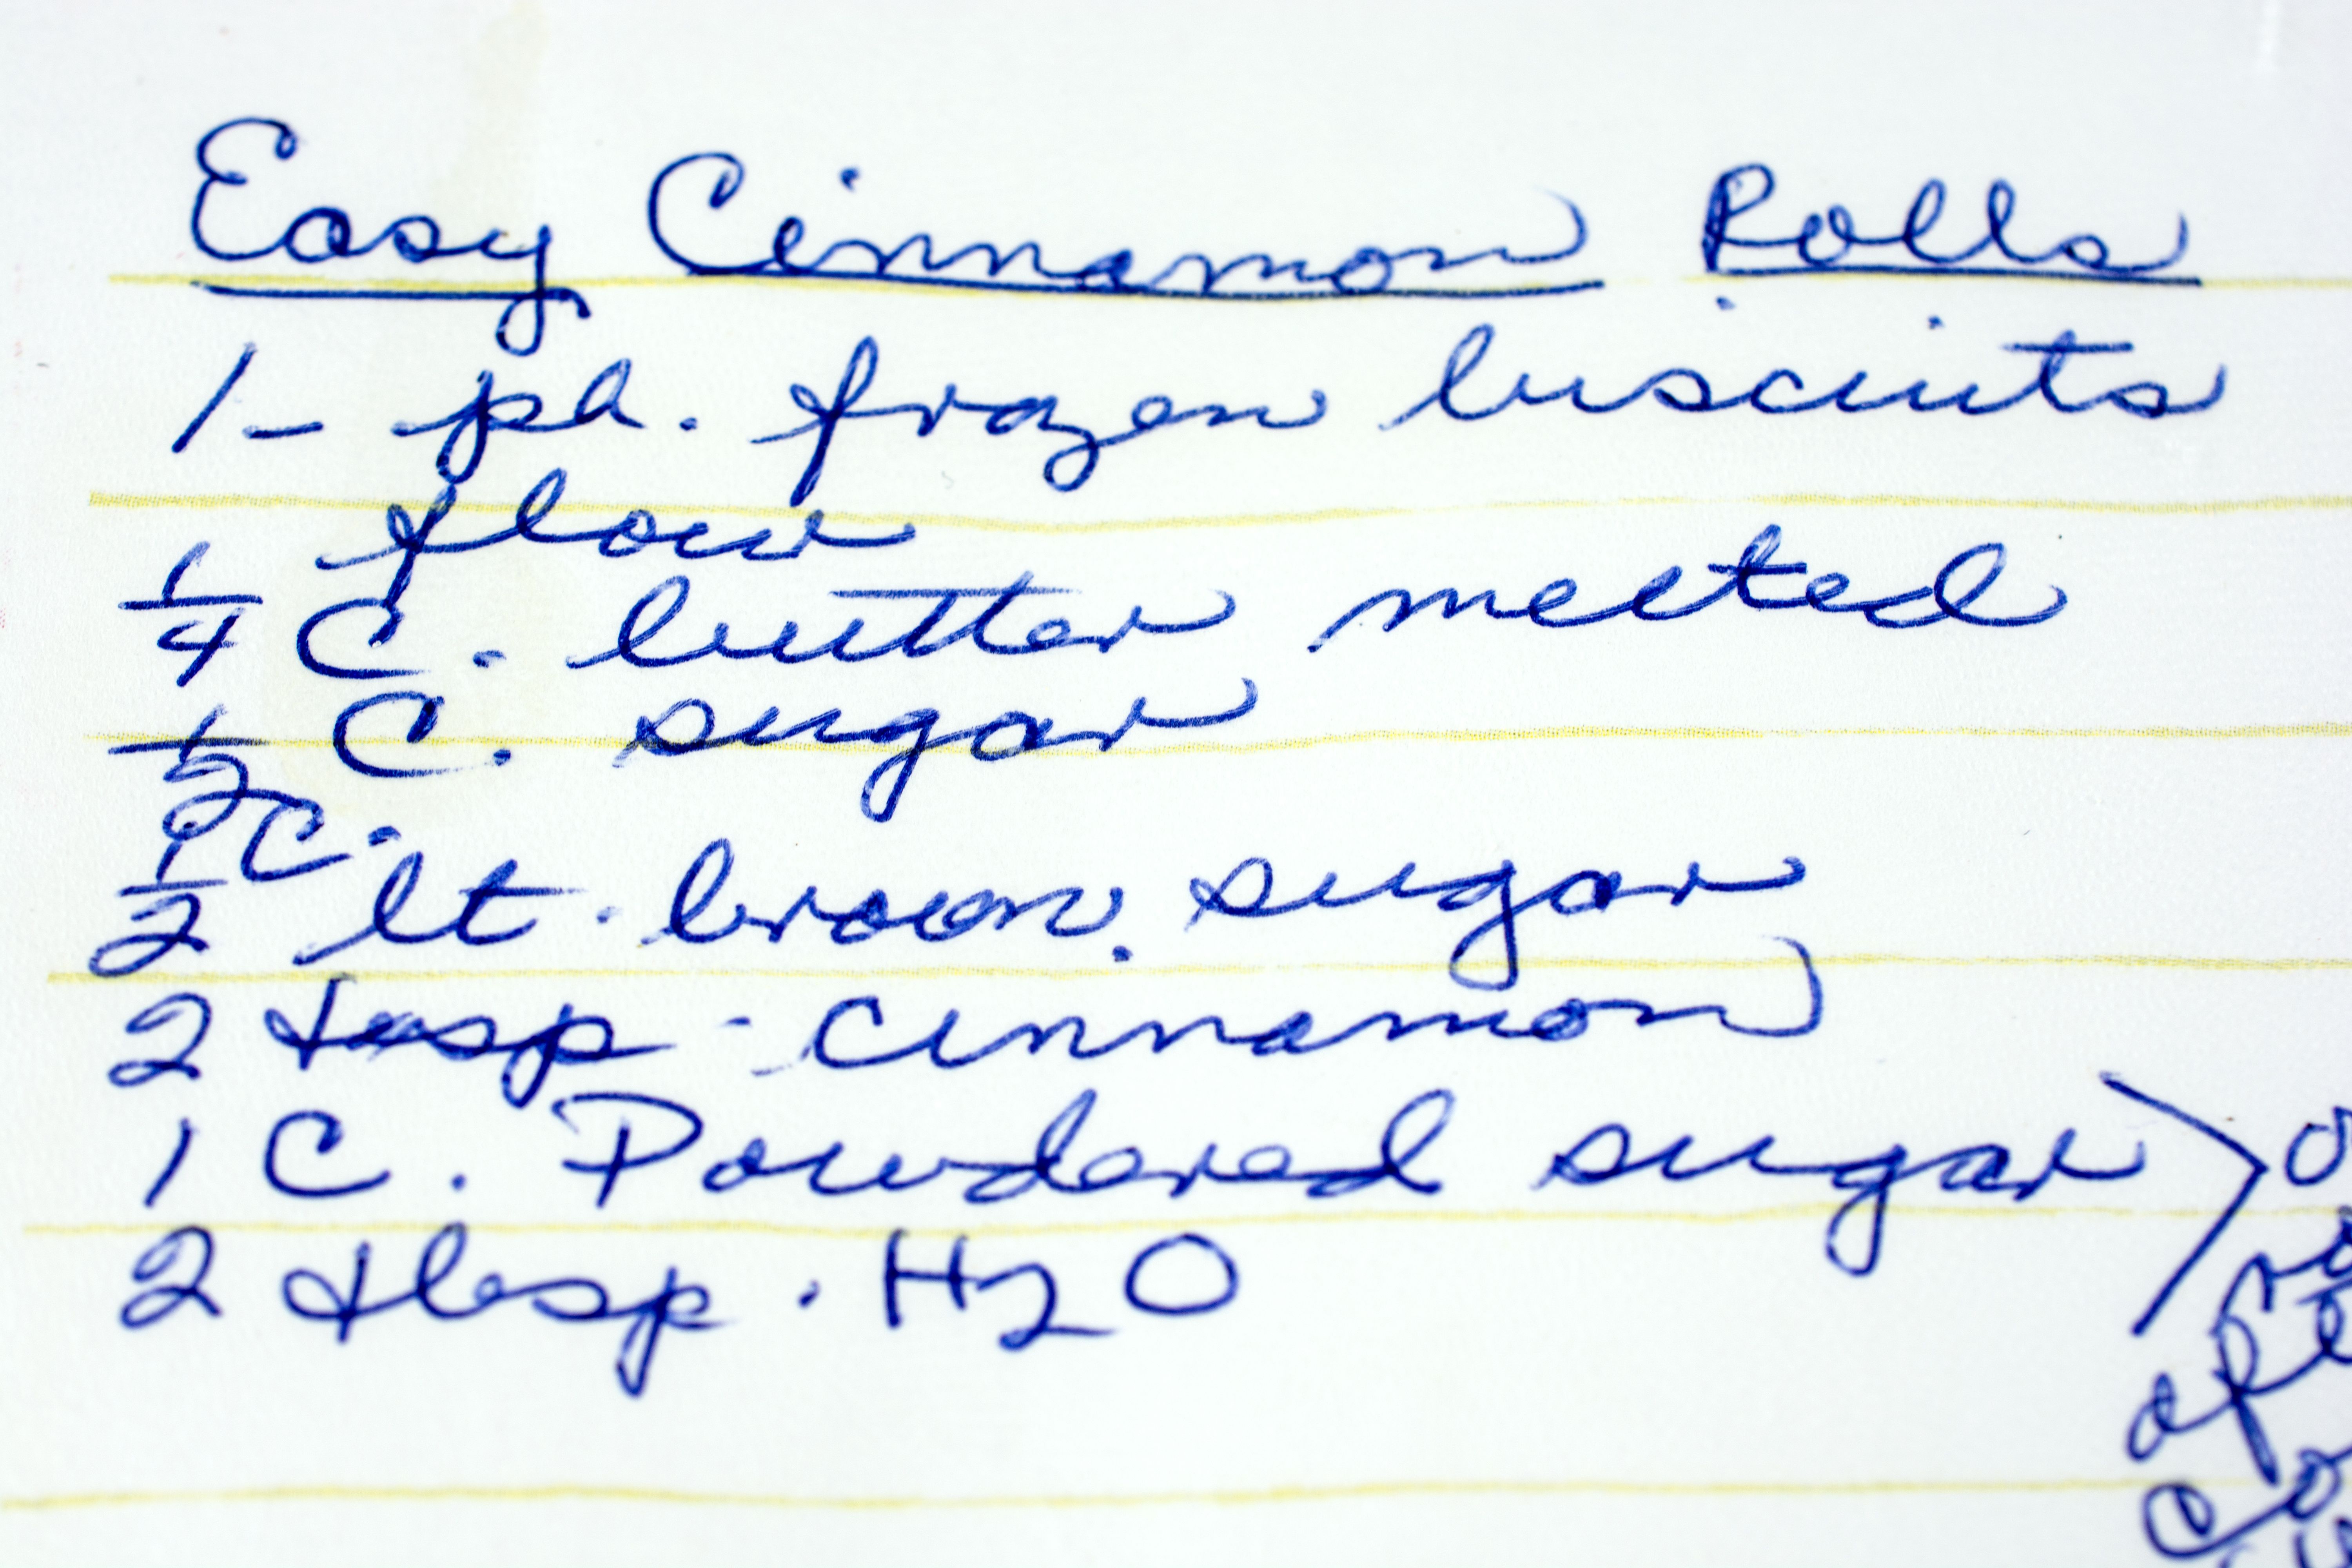 Easy Cinnamon Rolls
1- pk. frozen biscuits
flour
1/4 C. butter melted
1/2 C. sugar
1/2 C. lt. brown sugar
2 tsp - cinnamon
1 C. Powdered sugar
2 tbsp. H2O